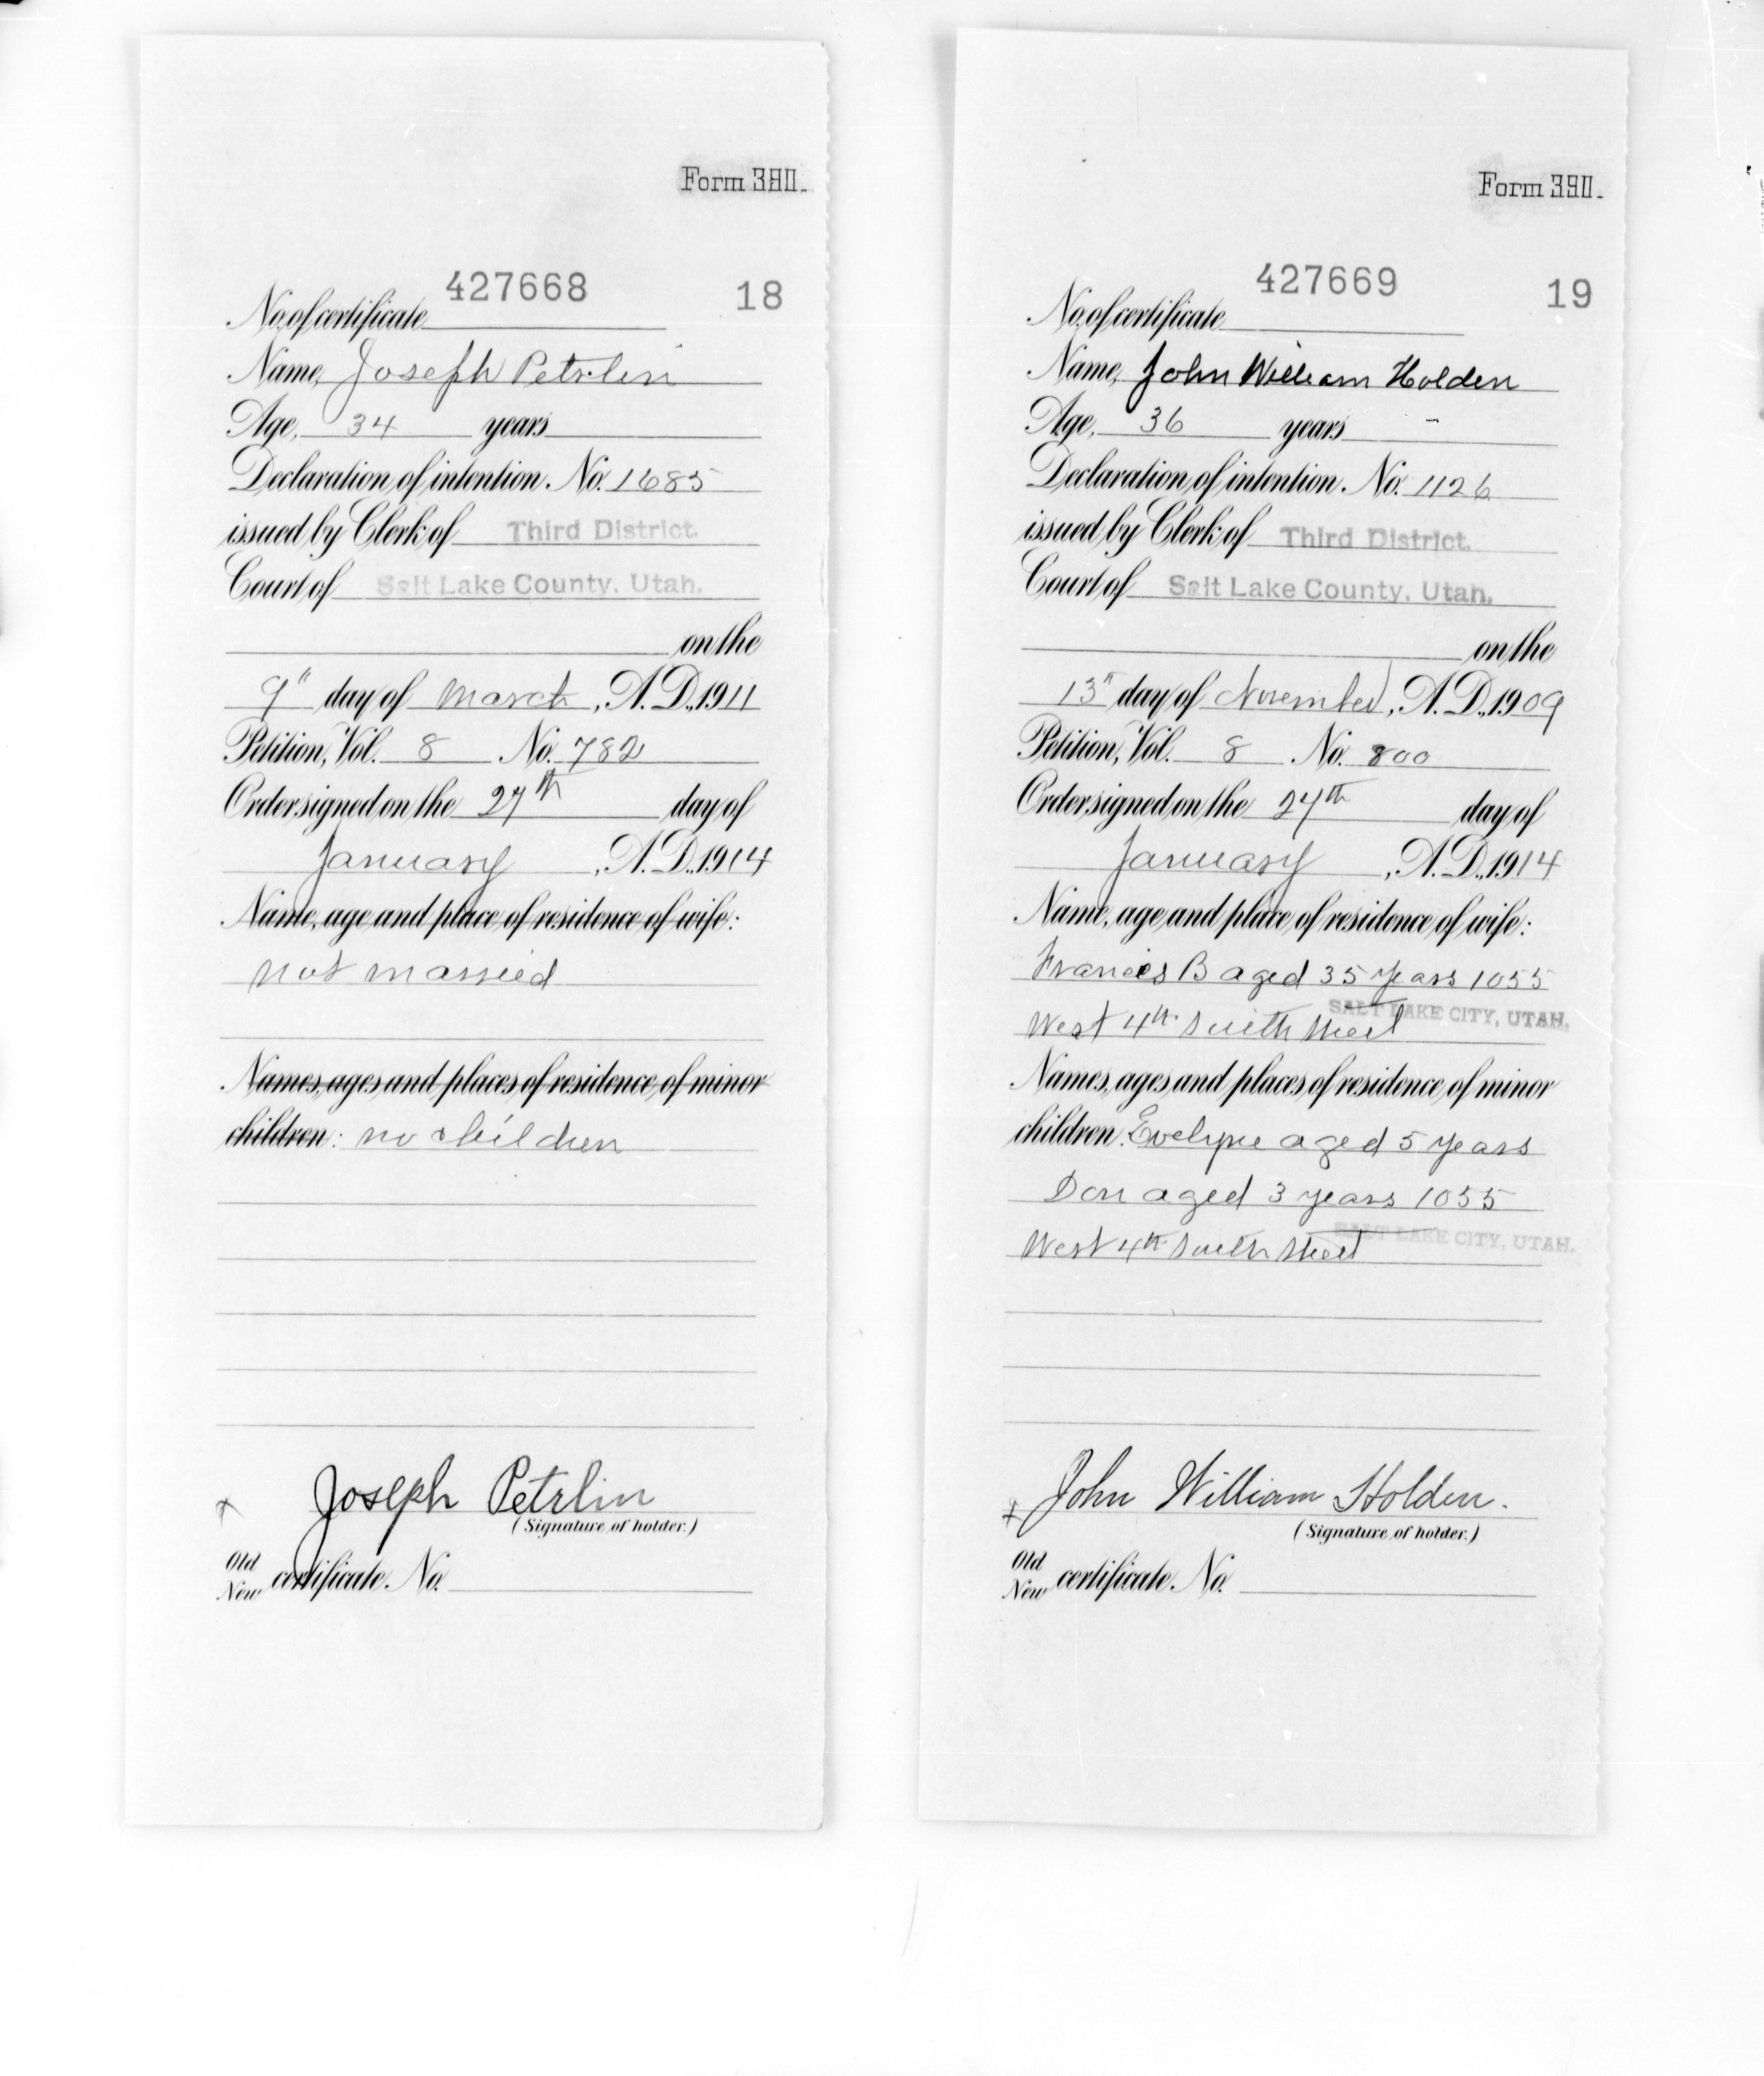 Form 380.
427668 18
No. of certificate
Name, Joseph Petrlin
Age, 34 years
Declaration of intention, No. 1685
issued by Clerk of Third District.
Court of Salt Lake County, Utah.
on the
9" day of March, A. D. 1911
Petition, Vol. 8 No. 782
Order signed on the 27th day of
January, A. D. 1914
Name, age and place of residence of wife:
not married
Names, ages and places of residence of minor
children: no children
x Joseph Petrlin
(Signature of holder.)
Old
New certificate No.
Form 390.
427669 19
No. of certificate
Name, John William Holden
Age, 36 years -
Declaration of intention, No. 1126
issued by Clerk of Third District.
Court of Salt Lake County, Utah.
on the
13" day of November, A. D. 1909
Petition, Vol. 8 No. 800
Order signed on the 27th day of
January, A. D. 1914
Name, age and place of residence of wife:
Francis B aged 35 years 1055
West 4th South Street SALT LAKE CITY, UTAH.
Names, ages and places of residence of minor
children. Evelyne aged 5 years
Don aged 3 years 1055
West 4th South Street SALT LAKE CITY, UTAH.
x John William Holden.
(Signature of holder.)
Old
New certificate No.